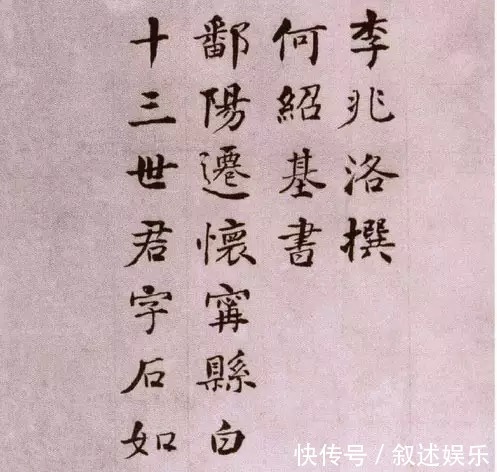 李兆洛撰
何紹基書
鄱陽遷懷甯縣白
十三世君字石如
快传号/叙述娱乐